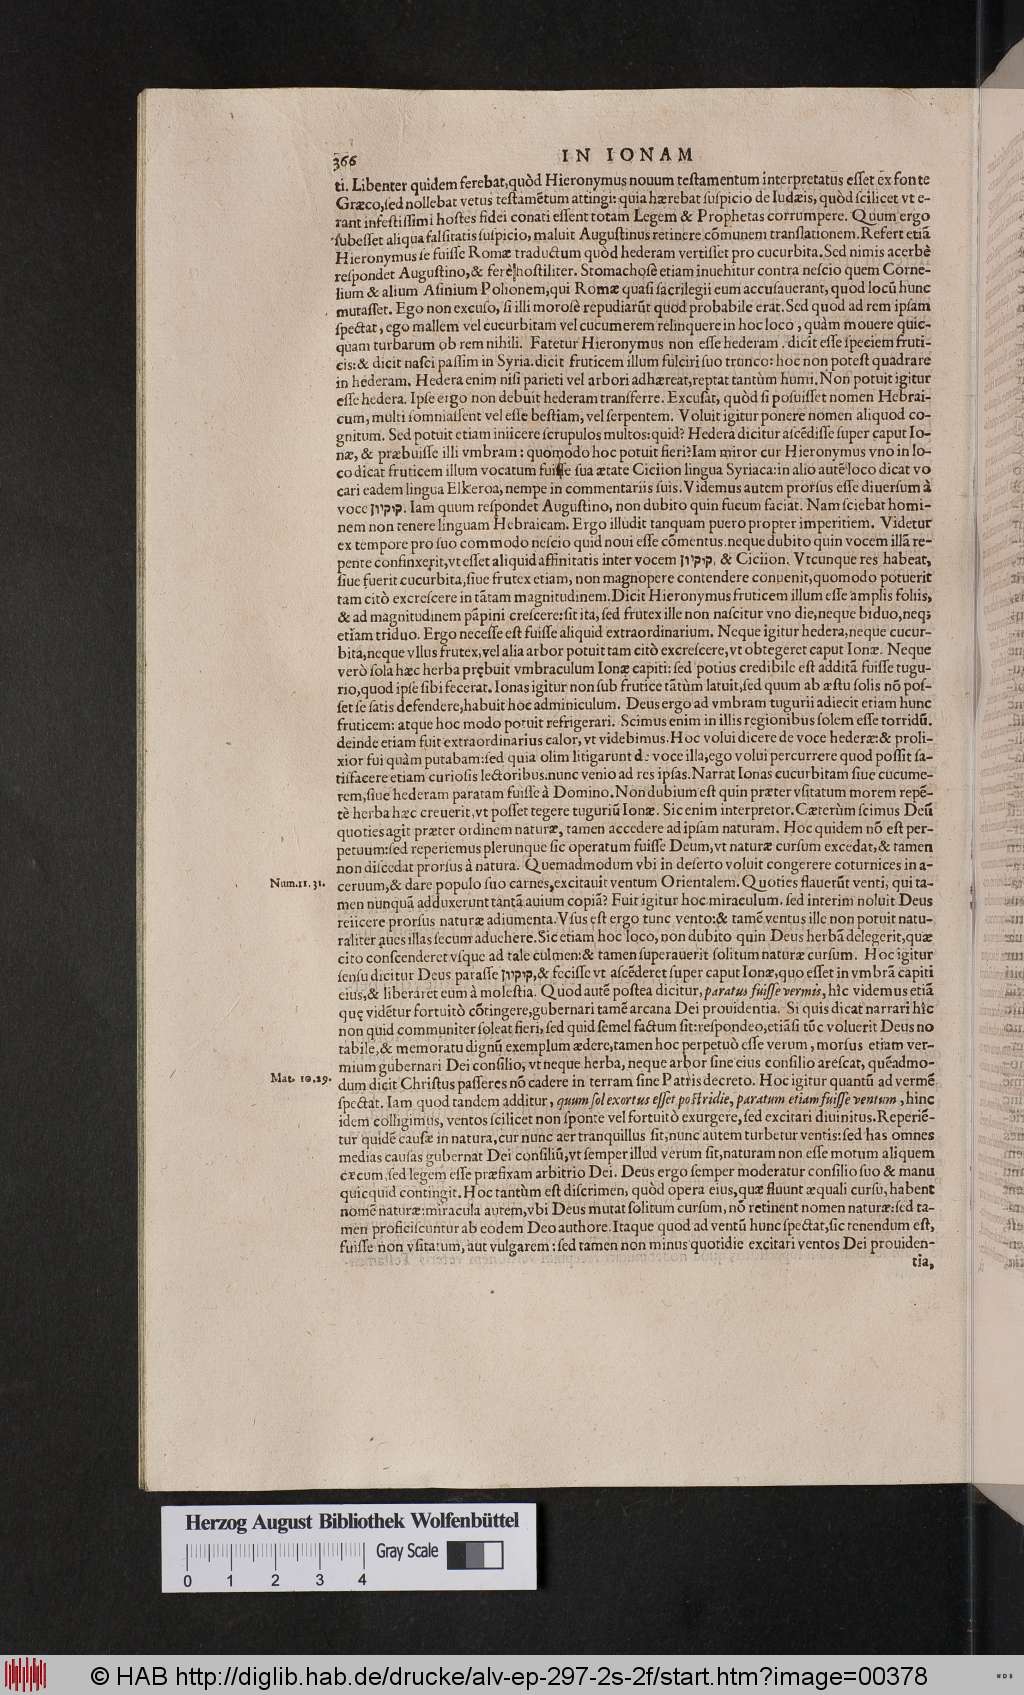 366
IN IONAM
ti. Libenter quidem ferebat, quòd Hieronymus nouum testamentum interpretatus esset ex fonte
Græco, sed nollebat vetus testamẽtum attingi: quia hærebat suspicio de Iudæis, quòd scilicet vt e-
rant infestissimi hostes fidei conati essent totam Legem & Prophetas corrumpere. Quum ergo
subesset aliqua falsitatis suspicio, maluit Augustinus retinere cõmunem translationem. Refert etiã
Hieronymus se fuisse Romæ traductum quòd hederam vertisset pro cucurbita. Sed nimis acerbè
respondet Augustino, & ferè hostiliter. Stomachosè etiam inuehitur contra nescio quem Corne-
lium & alium Asinium Polionem, qui Romæ quasi sacrilegii eum accusauerant, quod locũ hunc
mutasset. Ego non excuso, si illi morosè repudiarũt quod probabile erat. Sed quod ad rem ipsam
spectat, ego mallem vel cucurbitam vel cucumerem relinquere in hoc loco, quàm mouere quic-
quam turbarum ob rem nihili. Fatetur Hieronymus non esse hederam. dicit esse speciem fruti-
cis: & dicit nasci passim in Syria. dicit fruticem illum fulciri suo trunco: hoc non potest quadrare
in hederam. Hedera enim nisi parieti vel arbori adhæreat, reptat tantùm humi. Non potuit igitur
esse hedera. Ipse ergo non debuit hederam transferre. Excusat, quòd si posuisset nomen Hebrai-
cum, multi somniassent vel esse bestiam, vel serpentem. Voluit igitur ponere nomen aliquod co-
gnitum. Sed potuit etiam iniicere scrupulos multos: quid? Hedera dicitur ascẽdisse super caput Io-
næ, & præbuisse illi vmbram: quomodo hoc potuit fieri? Iam miror cur Hieronymus vno in lo-
co dicat fruticem illum vocatum fuisse sua ætate Ciciion lingua Syriaca: in alio autẽ loco dicat vo
cari eadem lingua Elkeroa, nempe in commentariis suis. Videmus autem prorsus esse diuersum à
voce קיקיון. Iam quum respondet Augustino, non dubito quin fucum faciat. Nam sciebat homi-
nem non tenere linguam Hebraicam. Ergo illudit tanquam puero propter imperitiem. Videtur
ex tempore pro suo commodo nescio quid noui esse cõmentus. neque dubito quin vocem illã re-
pente confinxerit, vt esset aliquid affinitatis inter vocem קיקיון, & Ciciion. Vtcunque res habeat,
siue fuerit cucurbita, siue frutex etiam, non magnopere contendere conuenit, quomodo potuerit
tam citò excrescere in tãtam magnitudinem. Dicit Hieronymus fruticem illum esse amplis foliis,
& ad magnitudinem pãpini crescere: sit ita, sed frutex ille non nascitur vno die, neque biduo, neq;
etiam triduo. Ergo necesse est fuisse aliquid extraordinarium. Neque igitur hedera, neque cucur-
bita, neque vllus frutex, vel alia arbor potuit tam citò excrescere, vt obtegeret caput Ionæ. Neque
verò sola hæc herba prębuit vmbraculum Ionæ capiti: sed potius credibile est additã fuisse tugu-
rio, quod ipse sibi fecerat. Ionas igitur non sub frutice tãtùm latuit, sed quum ab æstu solis nõ pos-
set se satis defendere, habuit hoc adminiculum. Deus ergo ad vmbram tugurii adiecit etiam hunc
fruticem: atque hoc modo potuit refrigerari. Scimus enim in illis regionibus solem esse torridũ.
deinde etiam fuit extraordinarius calor, vt videbimus. Hoc volui dicere de voce hederæ: & proli-
xior fui quàm putabam: sed quia olim litigarunt de voce illa, ego volui percurrere quod possit sa-
tisfacere etiam curiosis lectoribus. nunc venio ad res ipsas. Narrat Ionas cucurbitam siue cucume-
rem, siue hederam paratam fuisse à Domino. Non dubium est quin præter vsitatum morem repẽ-
tè herba hæc creuerit, vt posset tegere tuguriũ Ionæ. Sic enim interpretor. Cæterùm scimus Deũ
quoties agit præter ordinem naturæ, tamen accedere ad ipsam naturam. Hoc quidem nõ est per-
petuum: sed reperiemus plerunque sic operatum fuisse Deum, vt naturæ cursum excedat, & tamen
non discedat prorsus à natura. Quemadmodum vbi in deserto voluit congerere coturnices in a-
Num. 11. 31.
ceruum, & dare populo suo carnes, excitauit ventum Orientalem. Quoties flauerũt venti, qui ta-
men nunquã adduxerunt tantã auium copiã? Fuit igitur hoc miraculum. sed interim noluit Deus
reiicere prorsus naturæ adiumenta. Vsus est ergo tunc vento: & tamẽ ventus ille non potuit natu-
raliter aues illas secum aduehere. Sic etiam hoc loco, non dubito quin Deus herbã delegerit, quæ
cito conscenderet vsque ad tale culmen: & tamen superauerit solitum naturæ cursum. Hoc igitur
sensu dicitur Deus parasse קיקיון, & fecisse vt ascẽderet super caput Ionæ, quo esset in vmbrã capiti
eius, & liberaret eum à molestia. Quod autẽ postea dicitur, paratus fuisse vermis, hîc videmus etiã
quę vidẽtur fortuitò cõtingere, gubernari tamẽ arcana Dei prouidentia. Si quis dicat narrari hîc
non quid communiter soleat fieri, sed quid semel factum sit: respondeo, etiãsi tũc voluerit Deus no
tabile, & memoratu dignũ exemplum ædere, tamen hoc perpetuò esse verum, morsus etiam ver-
mium gubernari Dei consilio, vt neque herba, neque arbor sine eius consilio arescat, quẽadmo-
Mat. 10. 29.
dum dicit Christus passeres nõ cadere in terram sine Patris decreto. Hoc igitur quantũ ad vermẽ
spectat. Iam quod tandem additur, quum sol exortus esset postridie, paratum etiam fuisse ventum, hinc
idem colligimus, ventos scilicet non sponte vel fortuitò exurgere, sed excitari diuinitus. Reperiẽ-
tur quidẽ causæ in natura, cur nunc aer tranquillus sit, nunc autem turbetur ventis: sed has omnes
medias causas gubernat Dei consiliũ, vt semper illud verum sit, naturam non esse motum aliquem
cæcum, sed legem esse præfixam arbitrio Dei. Deus ergo semper moderatur consilio suo & manu
quicquid contingit. Hoc tantùm est discrimen, quòd opera eius, quæ fluunt æquali cursu, habent
nomẽ naturæ: miracula autem, vbi Deus mutat solitum cursum, nõ retinent nomen naturæ: sed ta-
men proficiscuntur ab eodem Deo authore. Itaque quod ad ventũ hunc spectat, sic tenendum est,
fuisse non vsitatum, aut vulgarem: sed tamen non minus quotidie excitari ventos Dei prouiden-
tia,
Herzog August Bibliothek Wolfenbüttel
Gray Scale
0 1 2 3 4
© HAB http://diglib.hab.de/drucke/alv-ep-297-2s-2f/start.htm?image=00378